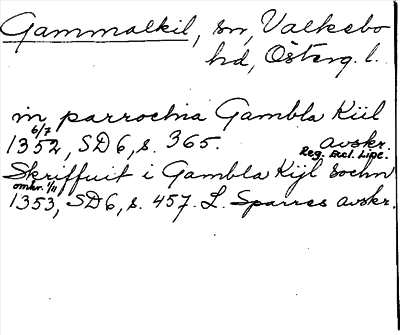 Gammalkil, sn, Valkebo
hd, Österg. l.
in parrochia Gambla Kiil
6/7
1352, SD 6, s. 365. avskr.
Reg. Eccl. Linc.
Skriffuit i Gambla Kijl Sochn
omkr. 1/11
1353, SD 6, s. 457. L. Sparres avskr.